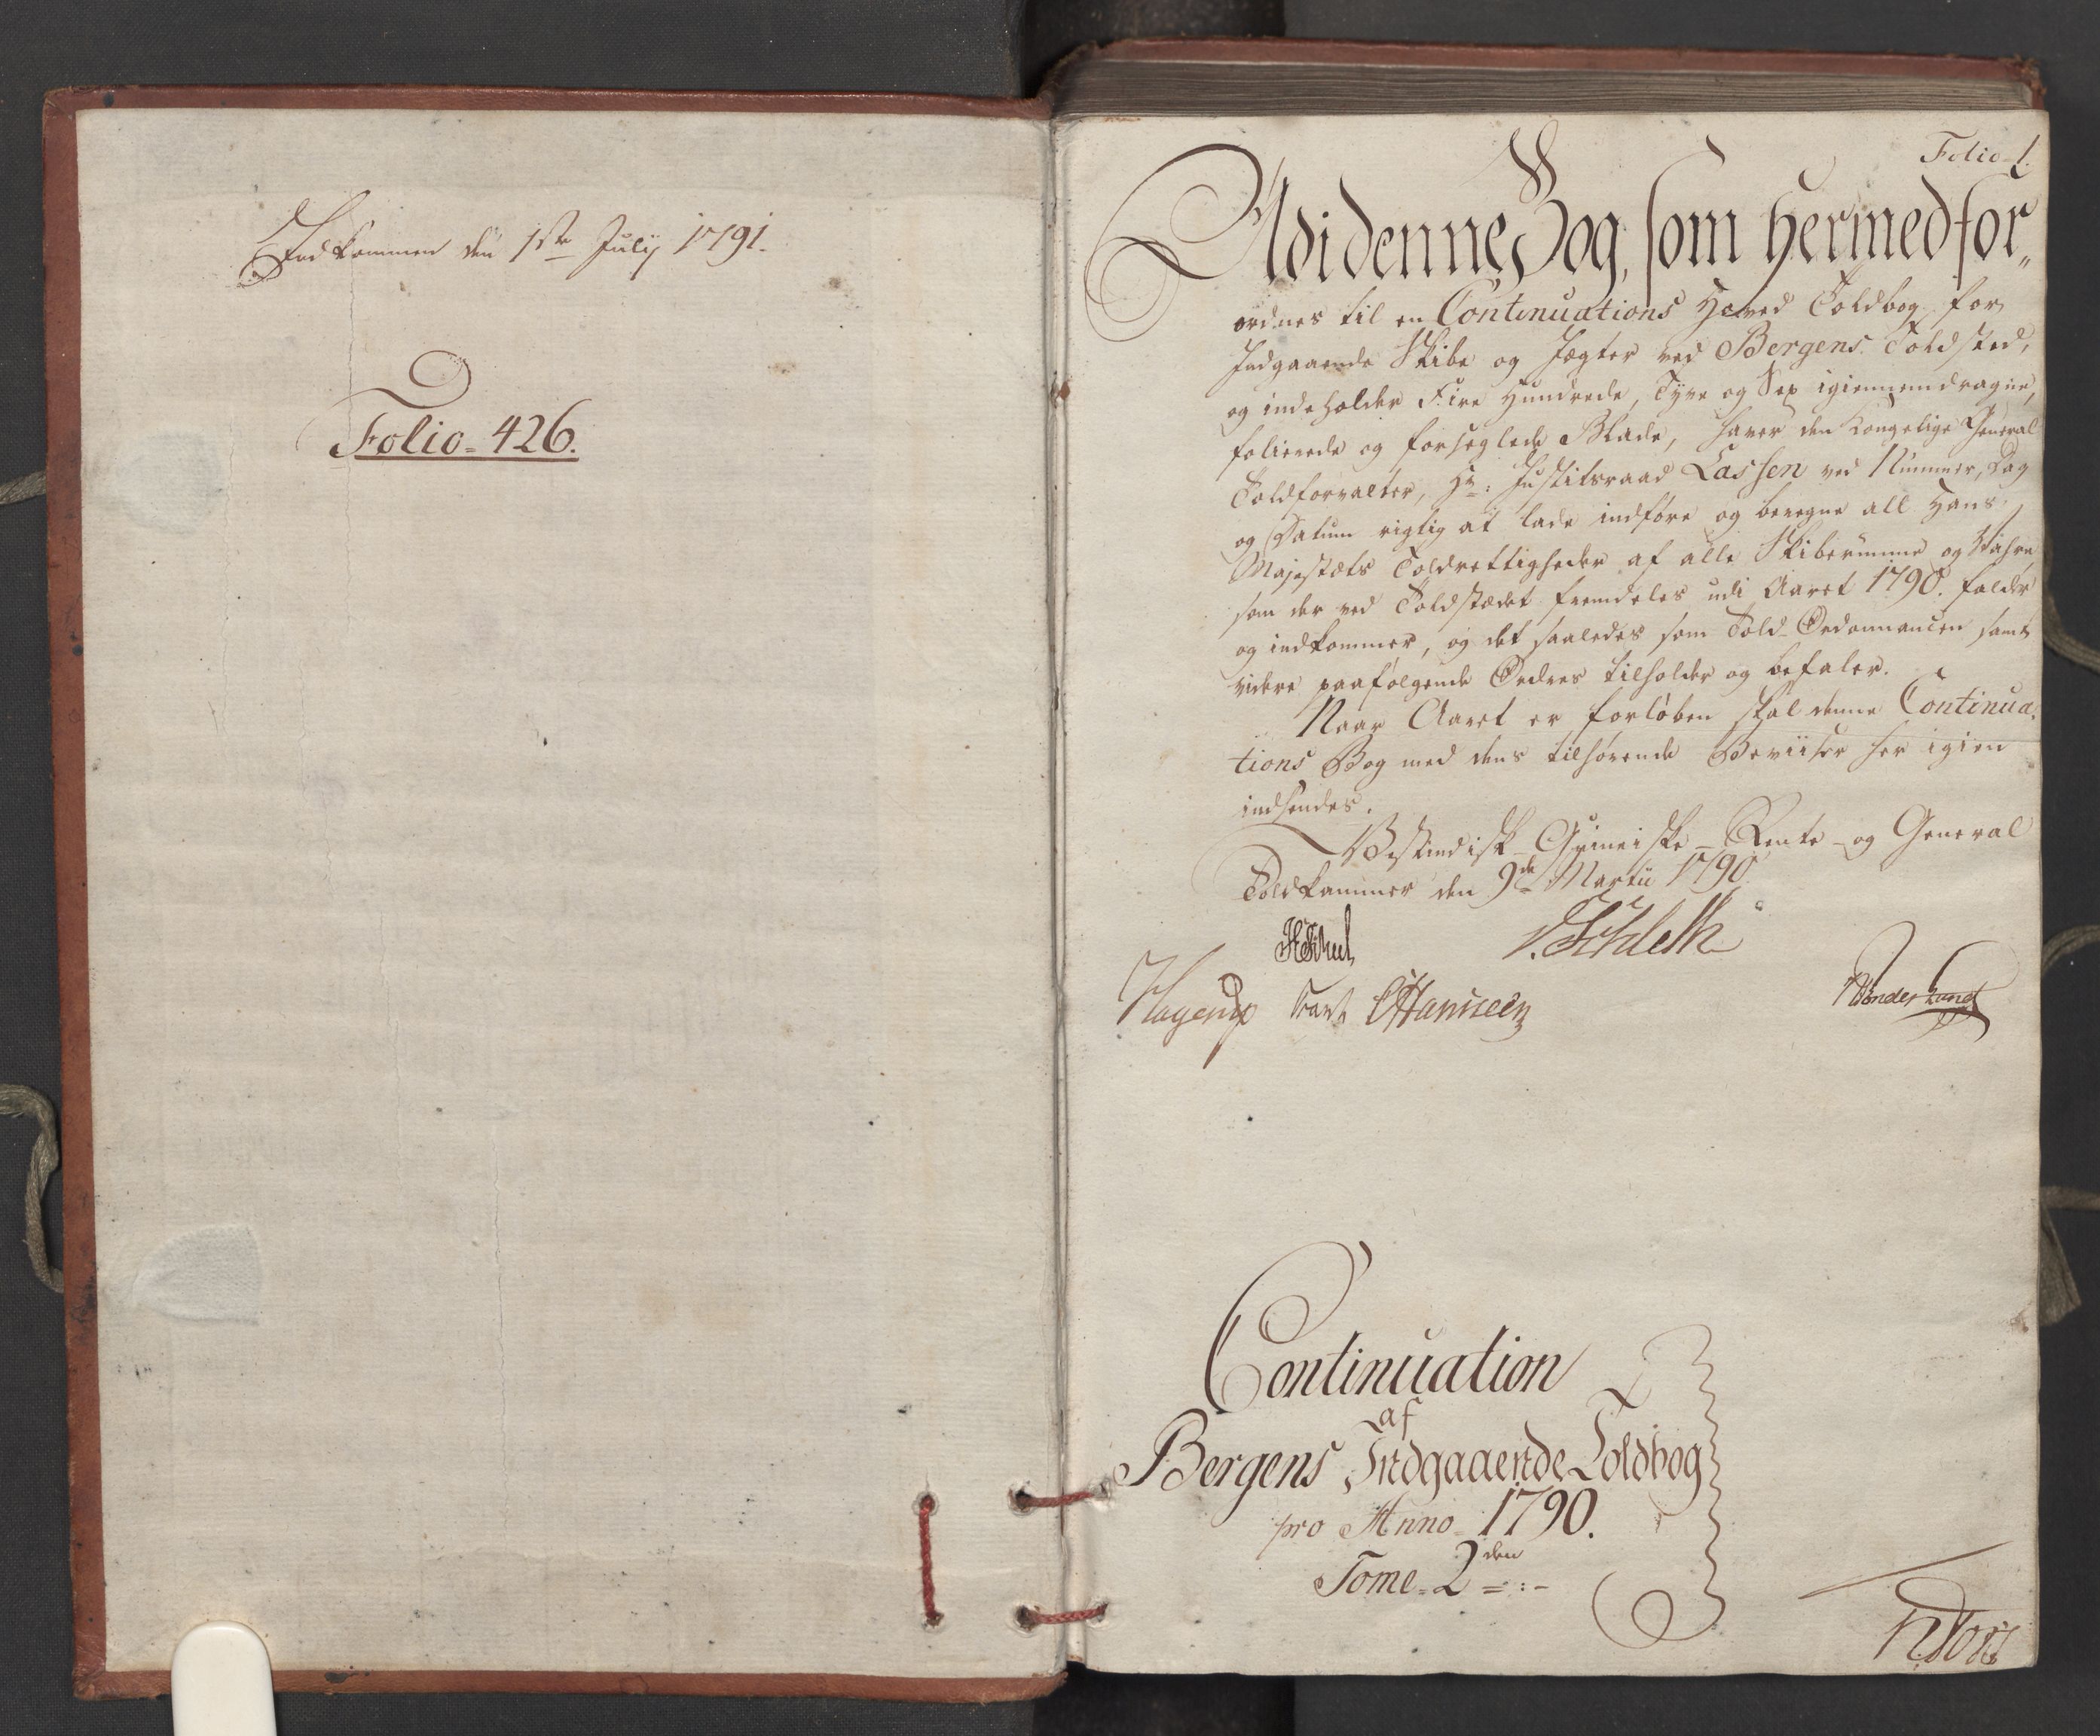 Indkommen den 1ste Julij 1791.
Folio = 426.
Folio = 1.
Udi denne Bog, som hermed for„
ordnes til en Continuations Hoved Toldbog for
Indgaaende Skibe og Jægter ved Bergens Toldsted,
og indeholder Fire Hundrede, Tyve og Sex igiennemdragne,
folierede og forseglede Blade, haver den Kongelige General
Toldforvalter, Hr: Justitsraad Lassen ved Nummer, Dag
og Datum rigtig at lade indføre og beregne all Hans
Majestæts Toldrettigheder af alle Skiberumme og Wahre
som der ved Toldstædet fremdeles udi Aaret 1790. falder
og indkommer, og det saaledes som Told-Ordonnancen samt
videre paafølgende Ordres tilholder og befaler.
Naar Aaret er forløben skal denne Continua„
tions Bog med dens tilhørende Beviiser her igien
indsendes.
Vestindisk-Guineiske-Rente-og General
Toldkammer den 9de Martii 1790
Hagerup CHanseen
Continuation
af
Bergens Indgaaende Toldbog
pro Anno = 1790.
Tome = 2den =:-